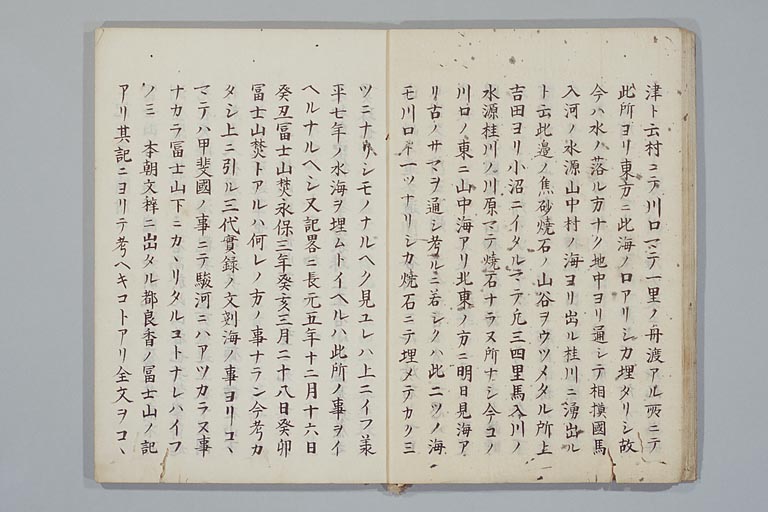 津ト云村ニテ川口マテ一里ノ舟渡アル所ニテ
此所ヨリ東方ニ此海ノ口アリシカ埋タリシ故
今ハ水ノ落ル方ナク地中ヨリ通シテ相摸國馬
入河ノ水源山中村ノ海ヨリ出ル桂川ニ湧出ル
ト云此邉ノ焦砂焼石ノ山谷ヲウツメタル所上
吉田ヨリ小沼ニイタルマテ凢三四里馬入川ノ
水源桂川ノ川原マテ焼石ナラヌ所ナシ今コノ
川口ノ東ニ山中海アリ北東ノ方ニ明日見海ア
リ古ノサマヲ通シ考ルニ若シクハ此二ツノ海
モ川口ト一ツナリシカ焼石ニテ埋メテカク三
ツニナリシモノナルヘク見ユレハ上ニイフ義
平七年ノ水海ヲ埋ムトイヘルハ此所ノ事ヲイ
ヘルナルヘシ又記畧ニ長元五年十二月十六日
癸丑冨士山焚永保三年癸亥三月二十八日癸卯
冨士山焚トアルハ何レノ方ノ事ナラン今考カ
タシ上ニ引ル三代實録ノ文剗海ノ事ヨリコヽ
マテハ甲斐國ノ事ニテ駿河ニハアツカラヌ事
ナカラ冨士山下ニカヽリタルコトナレハイフ
ノミ 本朝文粹ニ出タル都良香ノ冨士山ノ記
アリ其記ニヨリテ考ヘキコトアリ全文ヲコヽ